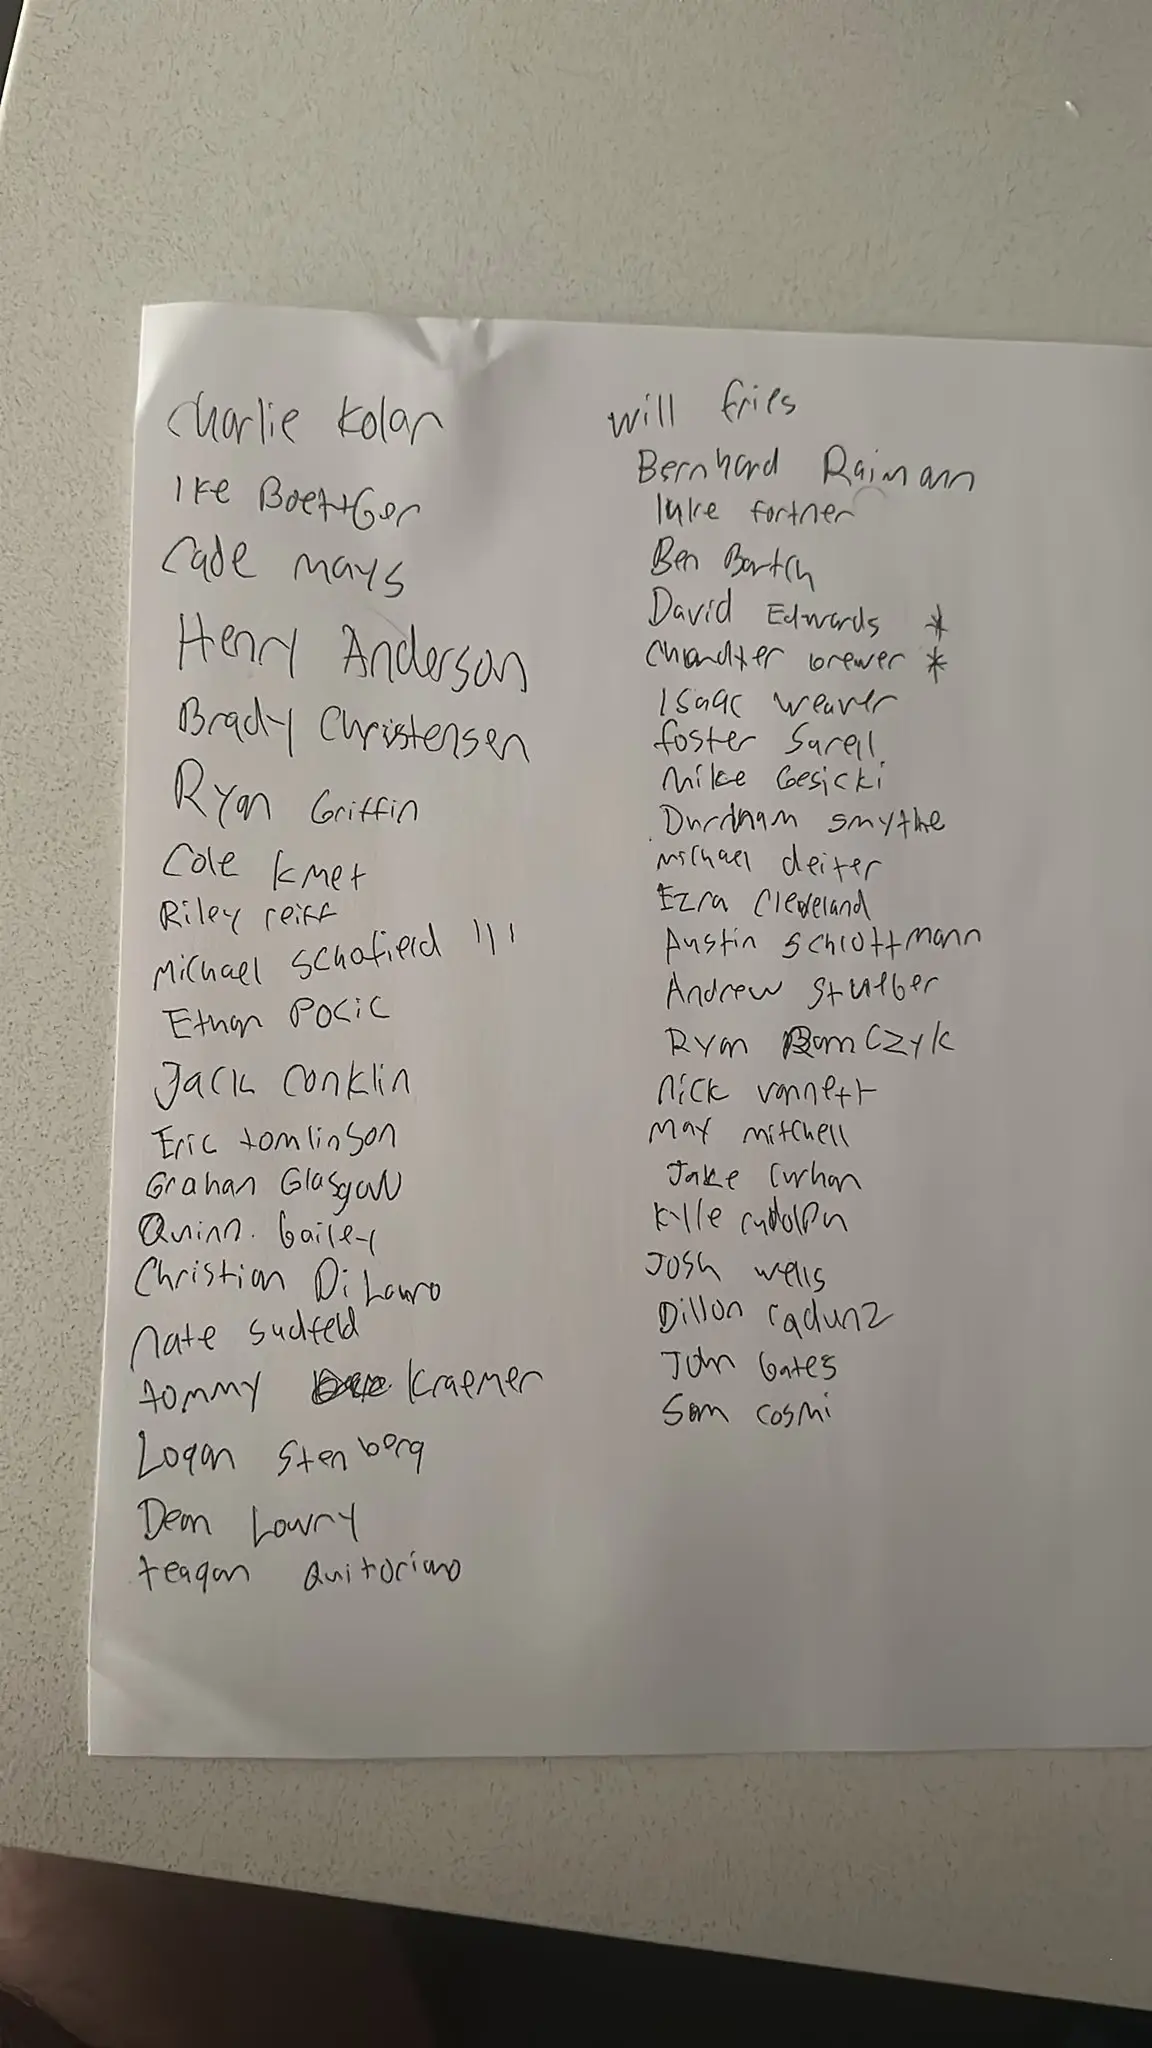 Charlie Kolar
Ike Boettger
Cade mays
Henry Anderson
Brady Christensen
Ryan Griffin
Cole Kmet
Riley reiff
Michael Schofield III
Ethan Pocic
Jack Conklin
Eric tomlinson
Grahan Glasgow
Quinn. bailey
Christian DiLauro
nate sudfeld
tommy Kraemer
Logan Stenberg
Dean Lowry
teagan Quitoriano
will fries
Bernhard Raimann
luke fortner
Ben Bartch
David Edwards *
Chandler brewer *
Isaac weaver
foster Sarell
mike Gesicki
Durdham smythe
michael deiter
Ezra Cleveland
Austin Schlottmann
Andrew Stueber
Ryan RamCzyk
nick vannett
max mitchell
Jake Curhan
Kylle rudolph
Josh wells
Dillon radunz
John bates
Sam cosmi